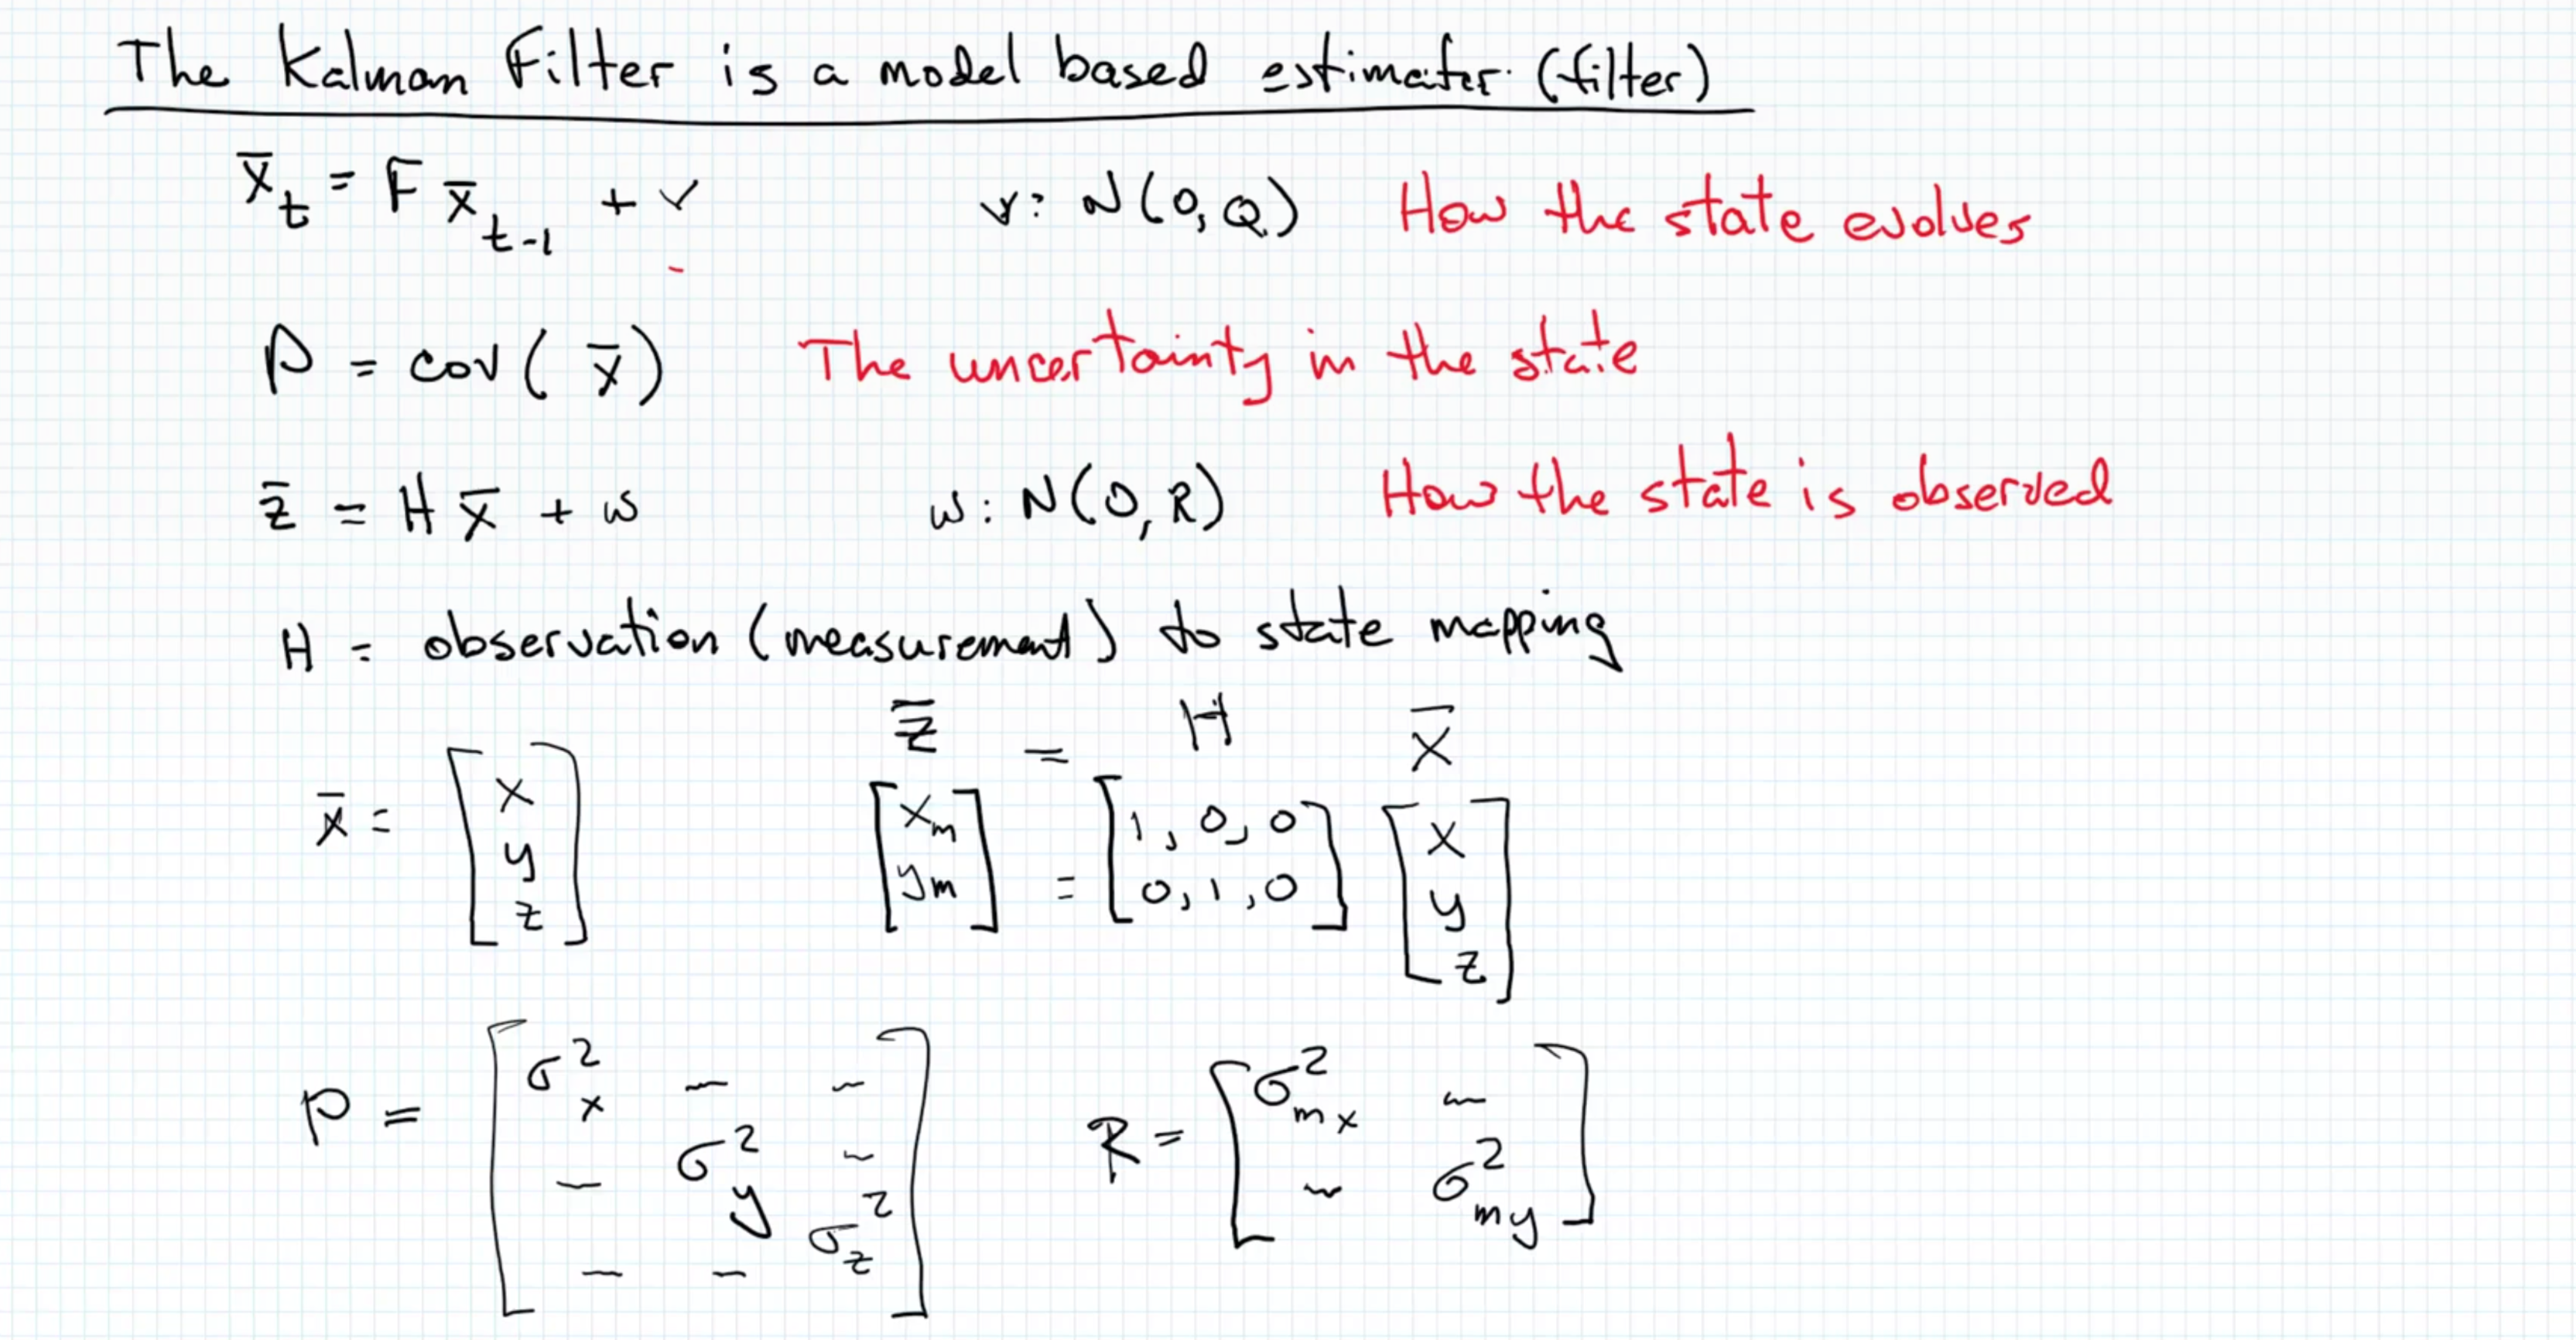 The Kalman Filter is a model based estimator (filter)
x̄_t = F x̄_{t-1} + v    v: N(0, Q)    How the state evolves
P = cov( x̄ )    The uncertainty in the state
z̄ = H x̄ + w    w: N(0, R)    How the state is observed
H = observation (measurement) to state mapping
z̄ = H x̄
x̄ = [x y z]    [x_m y_m] = [1, 0, 0 / 0, 1, 0] [x y z]
P = [σ²_x - - / - σ²_y - / - - σ²_z]    R = [σ²_mx - / - σ²_my]